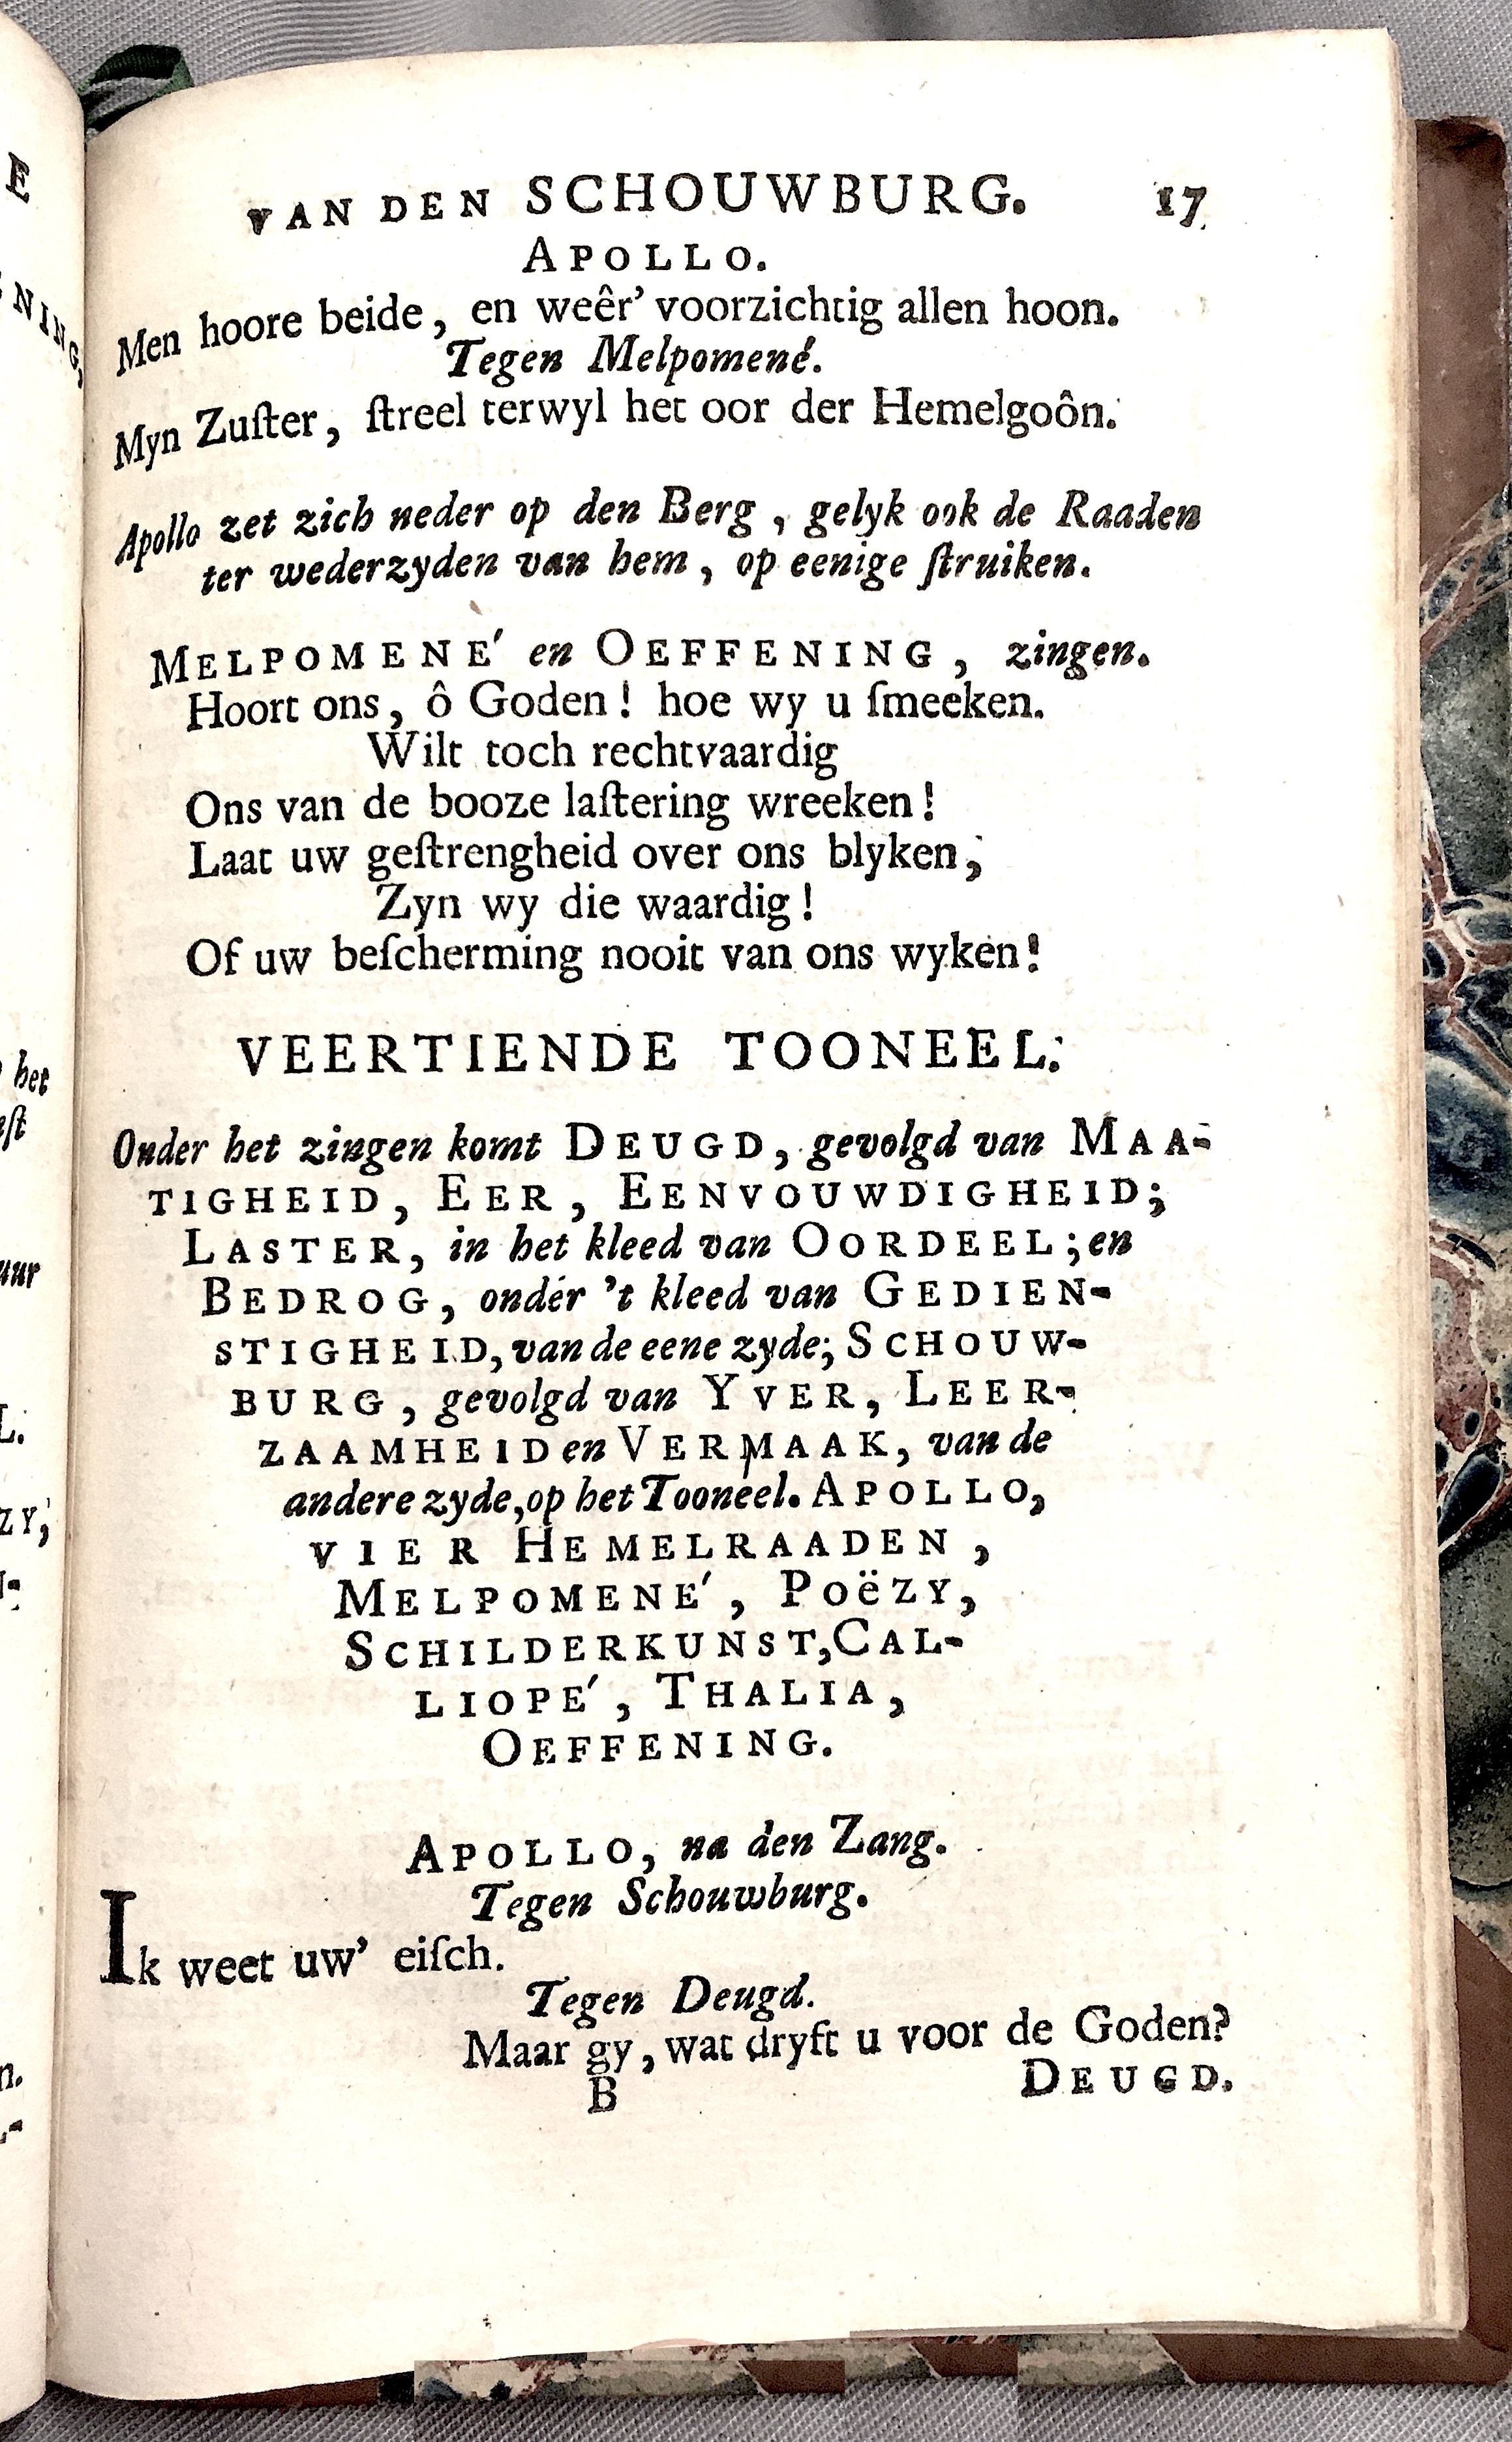 VAN DEN SCHOUWBURG. 17
APOLLO.
Men hoore beide, en weêr' voorzichtig allen hoon.
Tegen Melpomené.
Myn Zuſter, ſtreel terwyl het oor der Hemelgoôn.
Apollo zet zich neder op den Berg, gelyk ook de Raaden
ter wederzyden van hem, op eenige ſtruiken.
MELPOMENE' en OEFFENING, zingen.
Hoort ons, ô Goden! hoe wy u ſmeeken.
Wilt toch rechtvaardig
Ons van de booze laſtering wreeken!
Laat uw geſtrengheid over ons blyken,
Zyn wy die waardig!
Of uw beſcherming nooit van ons wyken!
VEERTIENDE TOONEEL.
Onder het zingen komt DEUGD, gevolgd van MAA-
TIGHEID, EER, EENVOUWDIGHEID;
LASTER, in het kleed van OORDEEL; en
BEDROG, onder 't kleed van GEDIEN-
STIGHEID, van de eene zyde; SCHOUW-
BURG, gevolgd van YVER, LEER-
ZAAMHEID en VERMAAK, van de
andere zyde, op het Tooneel. APOLLO,
VIER HEMELRAADEN,
MELPOMENE', POëZY,
SCHILDERKUNST, CAL-
LIOPE', THALIA,
OEFFENING.
APOLLO, na den Zang.
Tegen Schouwburg.
Ik weet uw' eiſch.
Tegen Deugd.
Maar gy, wat dryft u voor de Goden?
B DEUGD.